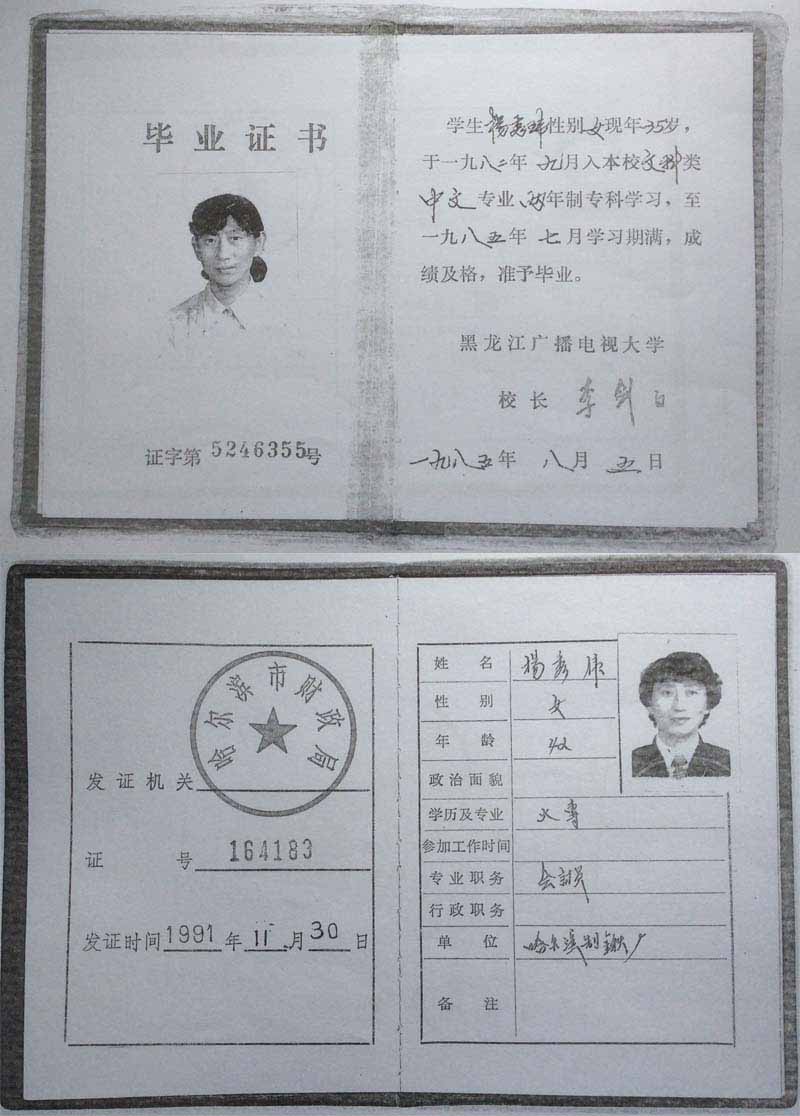 毕业证书
证字第5246355号
学生杨秀玮性别女现年35岁，
于一九八二年九月入本校文科类
中文专业，两年制专科学习，至
一九八五年七月学习期满，成
绩及格，准予毕业。
黑龙江广播电视大学
校长 李剑白
一九八五年八月五日
哈尔滨市财政局
发证机关
证号 164183
发证时间1991年11月30日
姓名 杨秀伟
性别 女
年龄 42
政治面貌
学历及专业 大专
参加工作时间
专业职务 会计员
行政职务
单位 哈尔滨
备注